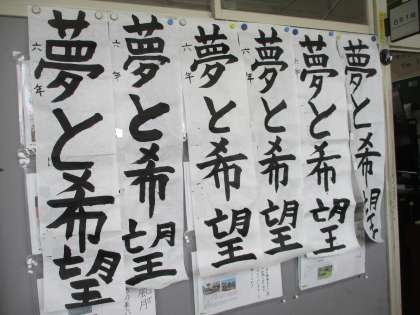 夢と希望
六年
夢と希望
六年
夢と希望
六年
夢と希望
六年
夢と希望
六年
夢と希望